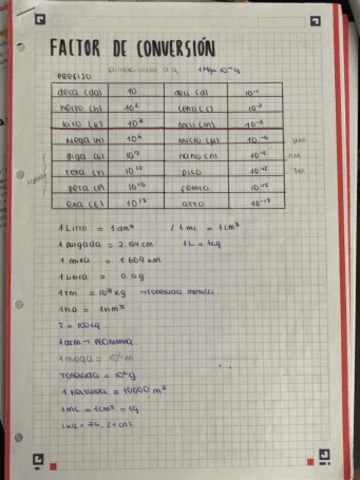 FACTOR DE CONVERSIÓN
PREFIJO
deca (da) 10 deci (d) 10⁻¹
hecto (h) 10² centi (c) 10⁻²
kilo (k) 10³ mili (m) 10⁻³
mega (M) 10⁶ micro (μ) 10⁻⁶
giga (G) 10⁹ nano (n)
tera (T) 10¹² pico 10⁻¹²
peta (P) 10¹⁵ femto 10⁻¹⁵
exa (E) 10¹⁸ atto 10⁻¹⁸
1 Litro = 1 dm³ / 1 mL = 1 cm³
1 pulgada = 2.54 cm 1L = 1kg
1 milla = 1.609 km
1 libra = 0.5g
1 TM = 10³ kg → tonelada metrica
1 ha = 1 hm²
T = 100kg
1 mega = 10⁶ m
Tonelada = 10⁶ g
1 hectarea = 10000 m²
1 mL = 1 cm³ = 1g